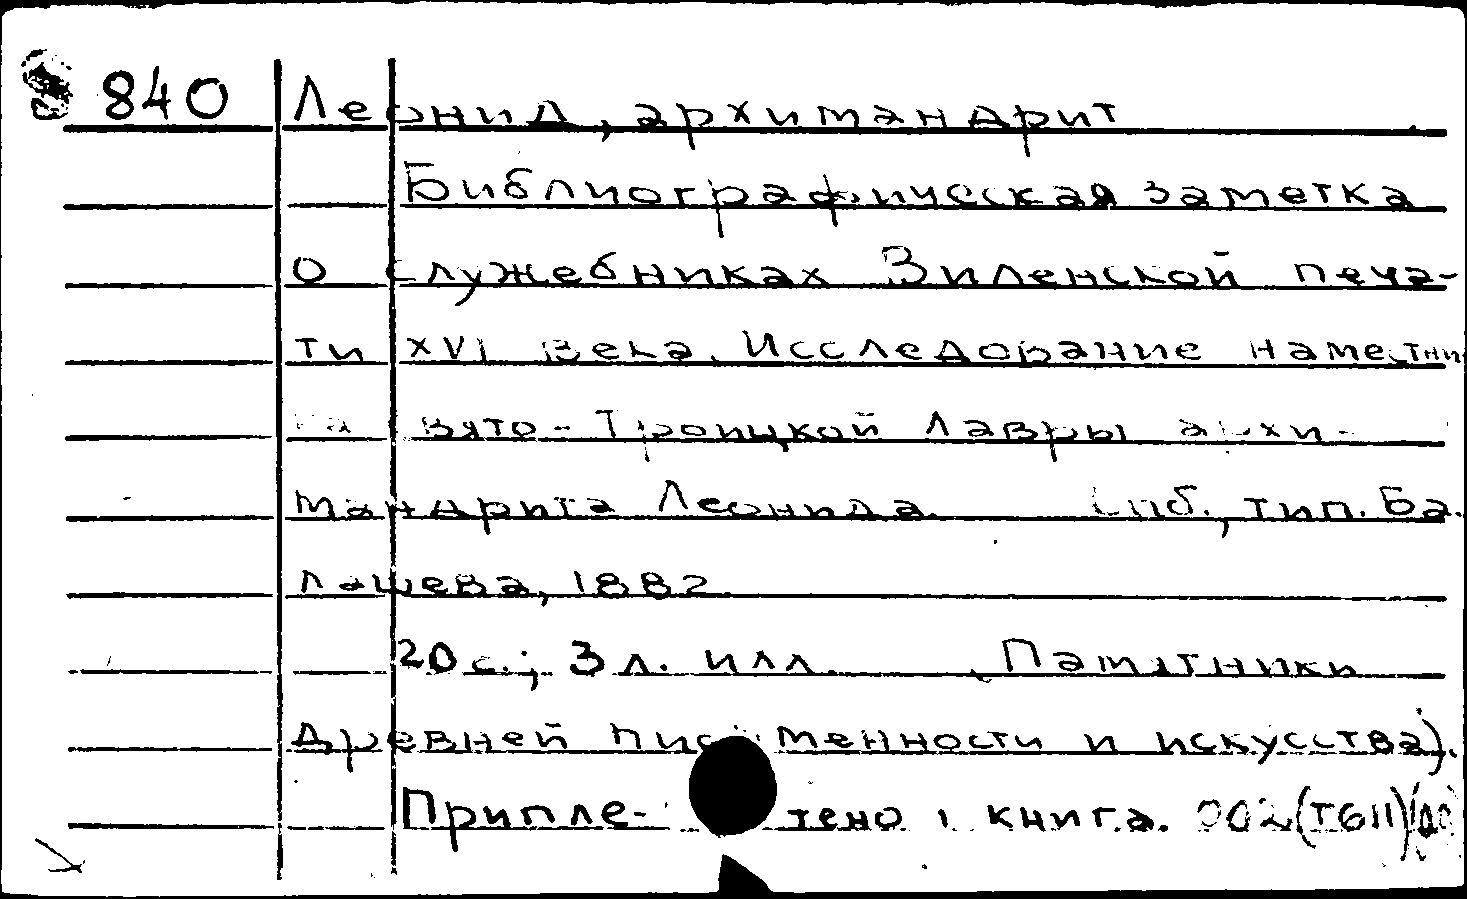 840 Леонид, архимандрит
Библиографическая заметка
о служебниках Виленской печа-
ти XVI века. Исследование наместни
ка Свято-Троицкой Лавры архи-
мандрита Леонида. Спб., тип. Ба.
лашева, 1882.
20 с.; 3 л. илл. Памятники
древней письменности и искусства).
Припле- тено 1 книга. 002(Т611)